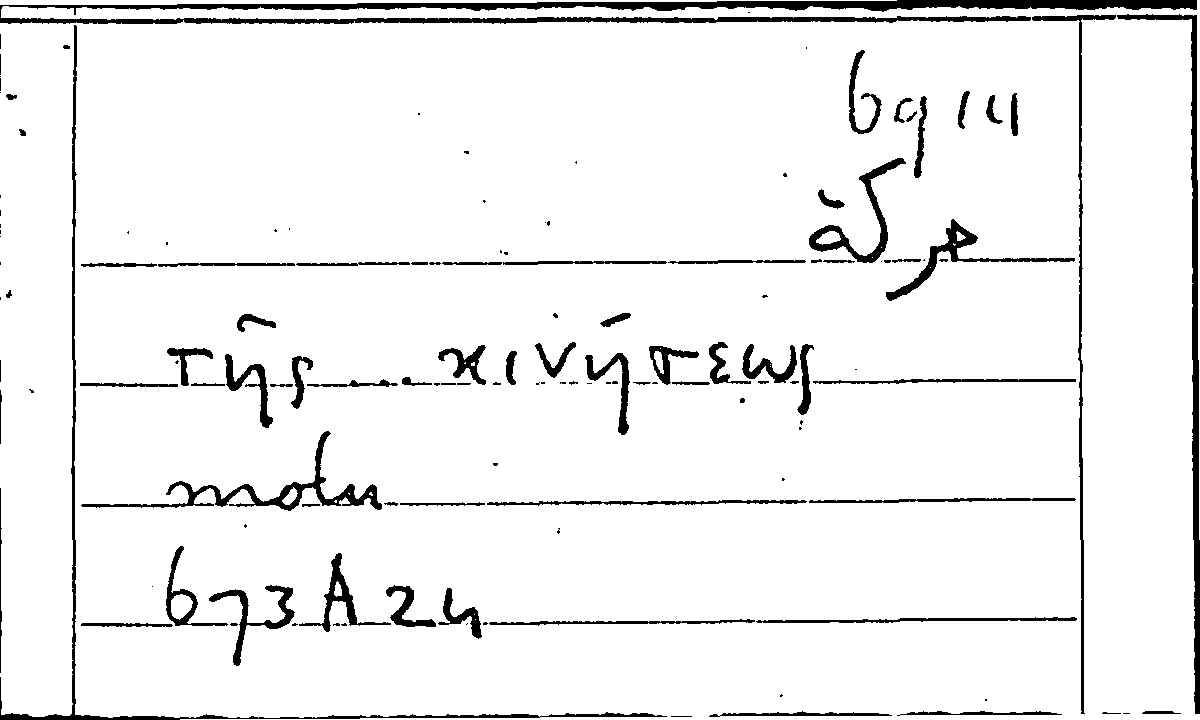 69 14
τῆς ... κινήσεως
motu
673A24